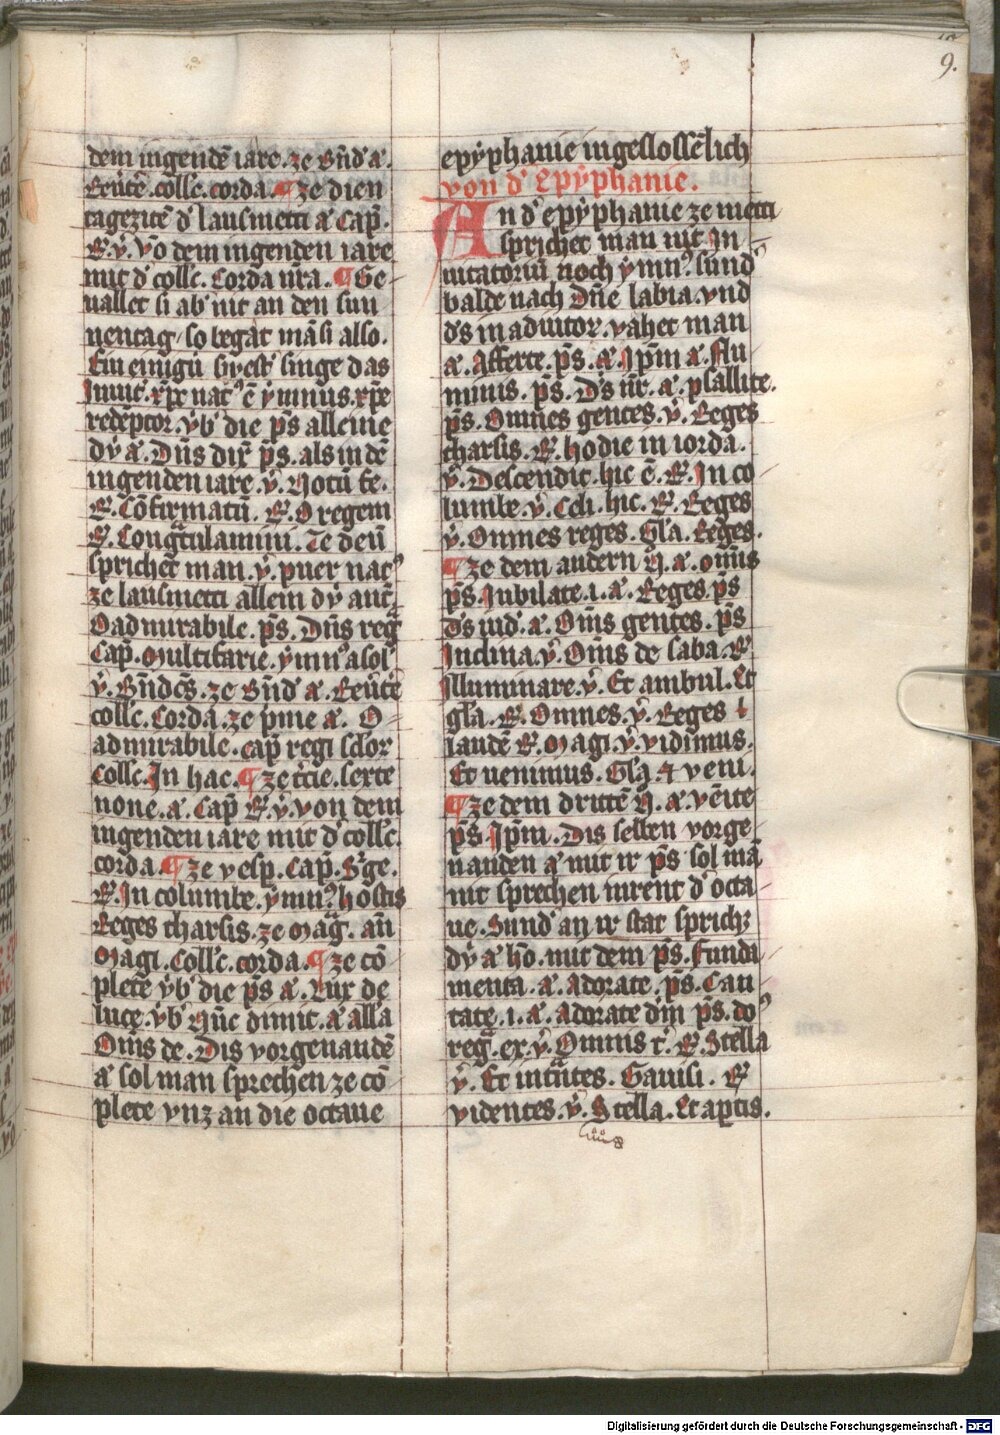 9.
dem ingendē iare. ze Bn̄d' a'.
Leuite. coll'c. corda. ¶ ze dien
tagezitē d' lausmetti a' Cap̄.
R. v̇. Vō dem ingenden iare
mit d' coll'c. Corda nr̄a. ¶ Ge
uallet si ab' nit an den sun
nentag / so begat mā si also.
Ein einigū swest' singe das
Inuit'. xp̄c nat9 ē ymnus. xp̄e
redēptor. vb' die ps alleine
dy a'. Dn̄s dix' ps. als in dē
ingenden iare. v̇. Notū fe.
R. Cōfirmatū. R. O regem
R. Congͣtulamini. Te deū
sprichet man. v̇. puer nat9
ze lausmetti allein dy ant'
O admirabile. ps. Dn̄s reg̃
Cap̄. Multifarie. ymn9 a sol'
v̇. Bn̄dc̄s. ze Bn̄d' a'. Leuite
coll'c. Corda. ze pme a'. O
admirabile. cap̄ regi sclor
Coll'c. In hac. ¶ ze tcie. serte
none. a'. Cap̄ R. v̇. von dem
ingenden iare mit d' coll'c.
corda. ¶ ze vesp̄. Cap̄. S'ge.
R. In columbe. ymn9. hostis
Reges tharsis. ze Mag̃. an̄
Magi. Coll'c. corda. ¶ ze cō
pletē vb' die ps a'. Lux de
luce. vb' Nūc dimit. a' alla
Om̄s de. Dis vorgenandē
a' sol man sprechen ze cō
plete vnz an die octaue
epyphanie ingeslossēlich
von d' Epyphanie.
An d' epyphanie ze metti
sprichet man nit In
uitatoriū noch ymn9. sund'
balde nach Dn̄e labia. vnd
d's in adiutor. vahet man
a'. Afferte. ps. a'. Ip̄m a'. Flu
minis. ps. D's nr̄. a'. psallite.
ps. Omnes gentes. v̇. Reges
tharsis. R. hodie in iorda.
v̇. Descendit. hic ē. R. In co
lumbe. v̇. Celi. hic. R. Reges
v̇. Omnes reges. Gl'a. Reges.
¶ ze dem andern N. a'. om̄is
ps. Iubilate. i. a'. Reges. ps
d's iud'. a'. Om̄s gentes. ps
Inclina. v̇. Om̄s de saba. R
Illuminare. v̇. Et ambul. Et
gl'a. R. Omnes. v̇. Reges
laudē R. Magi. v̇. vidimus.
Et uenimus. Gl'a. Et veni.
¶ ze dem drittē N. a'. venite
ps. Ip̄m. Dis selben vorge
nanden a' mit ir ps sol mā
nit sprechen nirent d' octa
ue. Sund' an ir stat sprich3
dy a' ho. mit dem ps. Funda
menta. a'. Adorate. ps. Can
tate. i. a'. Adorate dm̄ ps. do9
reg̃. ex. v̇. Omnis t'. R. Stella
v̇. Et intͣntes. Gauisi. R
videntes. v̇. Stella. Et aptis.
Digitalisierung gefördert durch die Deutsche Forschungsgemeinschaft - DFG